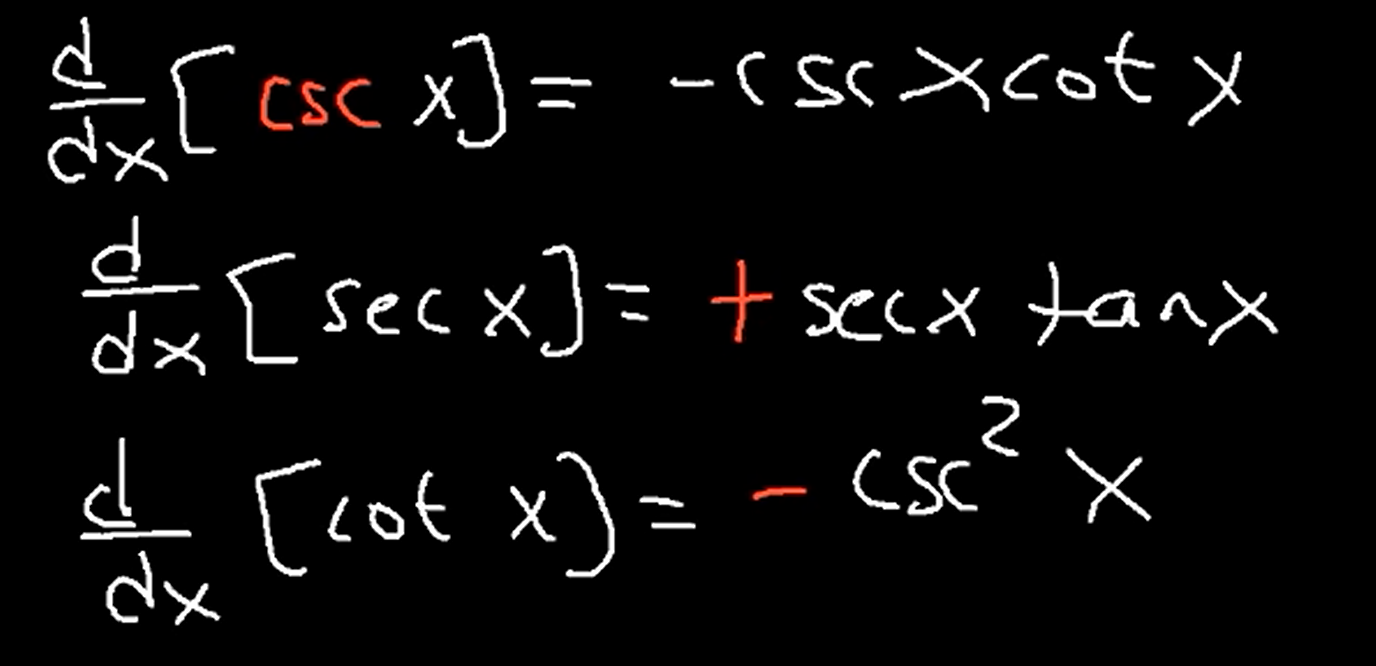 d/dx [csc x] = -csc x cot x
d/dx [sec x] = + sec x tan x
d/dx [cot x] = - csc² x